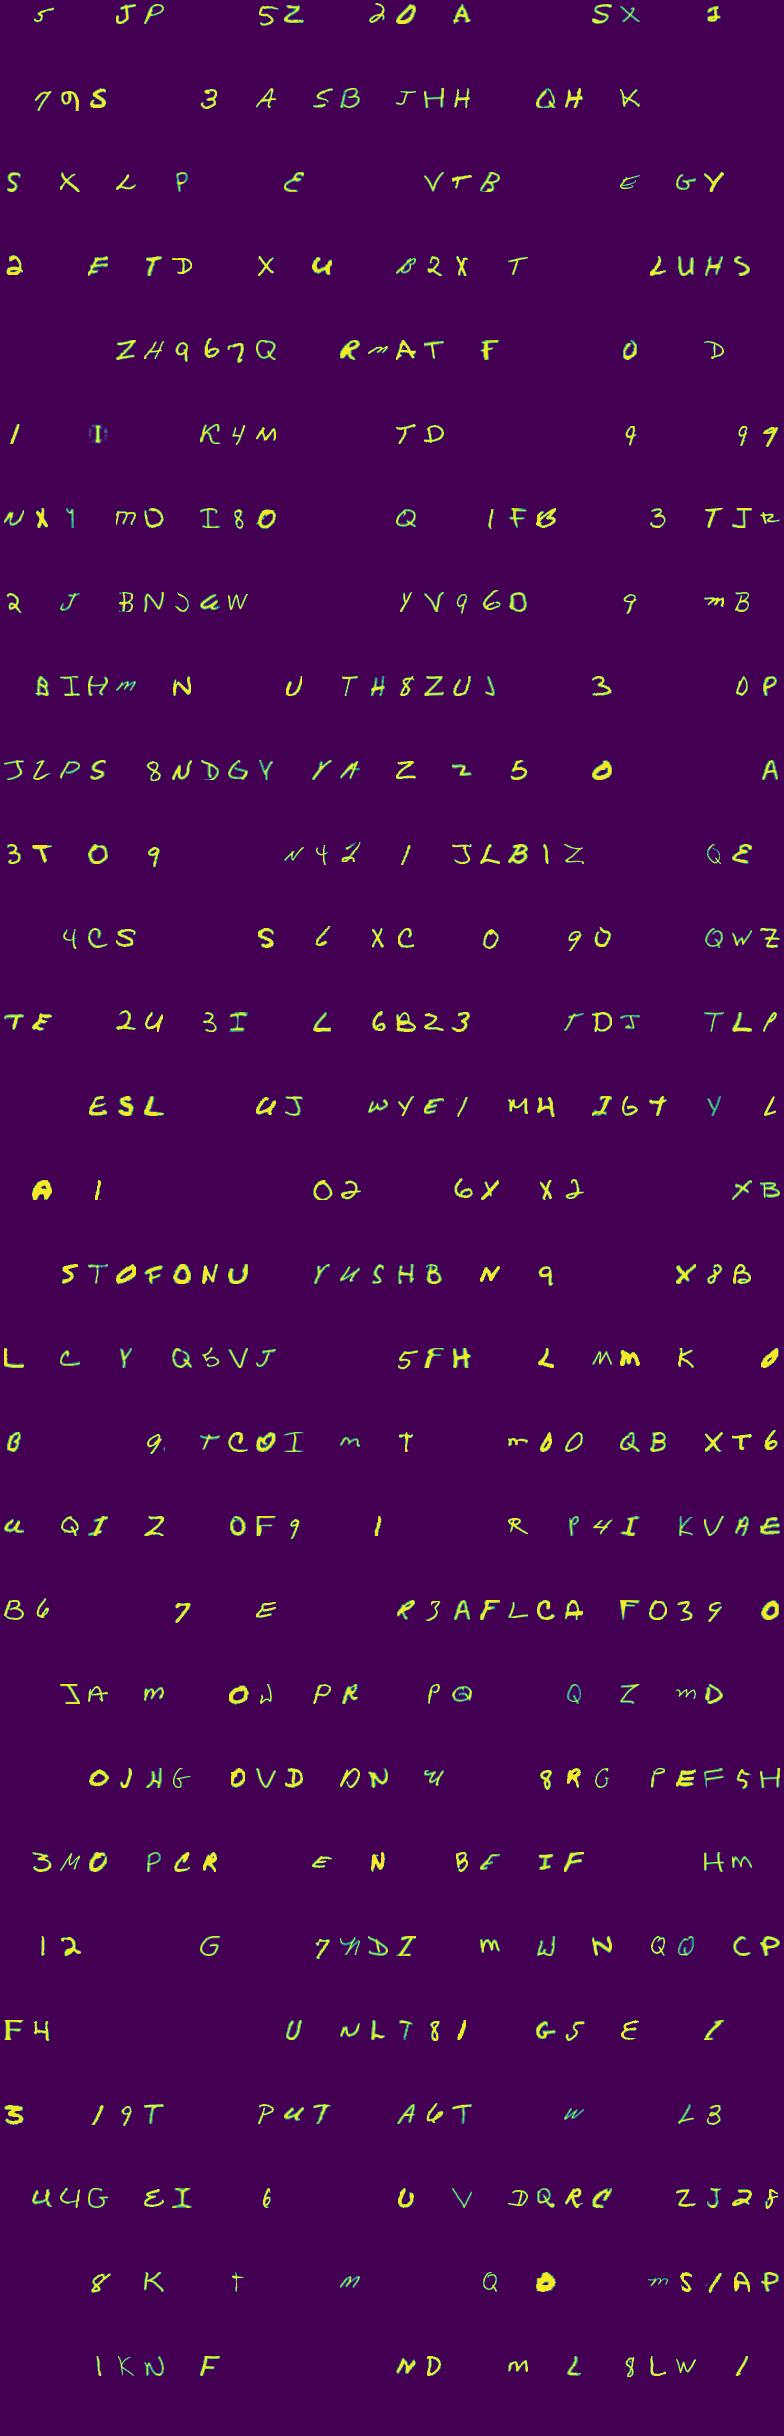 5 JP 5Z 20 A SX I
79S 3 A 5B JHH QH K
S X L P E VTB E GY
2 F TD X U B2X T LUHS
ZH967Q RMAT F 0 D
1 I K4M TD 9 99
NXY MO I80 Q 1FB 3 TJR
2 J BNJGW YV960 9 MB
BIHM N U TH8ZUJ 3 DP
JZPS 8NDGY YA Z 2 5 0 A
3T O 9 N42 1 JLB1Z QE
4CS S 6 XC 0 90 QWZ
TE 2U 3I L 6BZ3 TDJ TLP
ESL UJ WYE1 MH IG7 Y L
A 1 02 6X X2 XB
5TOFONU YUSHB N 9 X8B
L C Y Q5VJ 5FH L MM K 0
B 9 TCOI M T MDO QB XT6
U QI Z OF9 1 R P4I KVAE
B6 7 E R3AFLCA FO39 0
JA M OW PR PQ Q Z MD
OJHG OVD DN U 8RG PEF5H
3MO PCR E N BE IF HM
12 G 7MDI M W N QQ CP
F4 U NLT81 G5 E I
3 19T PUT A6T W L3
U4G EI 6 U V DQRC ZJ28
8 K T M Q O MS1AP
1KN F ND M L 8LW 1